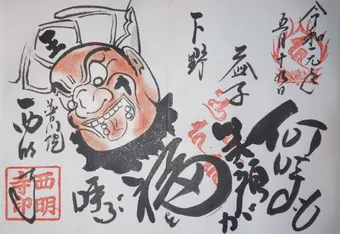 令和元年
五月十
日
何時も
笑顔が
福を
呼ぶ
下野
益子
王
普門院
西明寺
西明
寺印